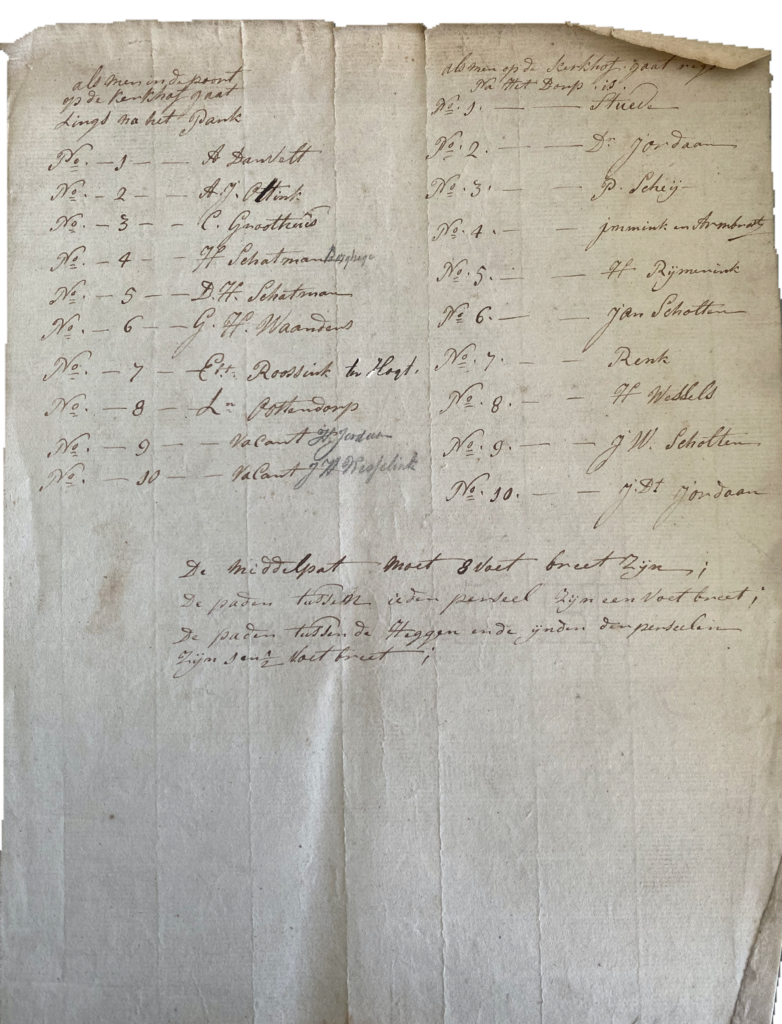 als men in de poort
op de kerkhof gaat
Lings na het Pank
No. - 1 - - A Danvelt
No. - 2 - - A. J. Ottink
No. - 3 - - C. Groothuis
No. - 4 - - H Schatman
No. - 5 - - D. H. Schatman
No. - 6 - - G. H. Waanders
No. - 7 - - Roessink ten Hogt.
No. - 8 - - Ln Ottendorp
No. - 9 - - vacant H. Jordaan
No. - 10 - - vacant J H Wesselink
als men op de kerkhof gaat regs
Na Het Dorp is.
No. 1. - - Stuede
No. 2. - - Dr Jordaan
No. 3. - - P. Scheij
No. 4. - - jmmink en Armbrost
No. 5. - - H Rijmenink
No. 6. - - Jan Scholten
No. 7. - - Renk
No. 8. - - H Wessels
No. 9. - - J W. Scholten
No. 10. - - J. Dt Jordaan
De middelpat moet 8 voet breet Zijn ;
De paden tussen ieder perseel Zijn een voet breet ;
De paden tussen de Heggen en de ijnden der perseelen
Zijn voet breet ;